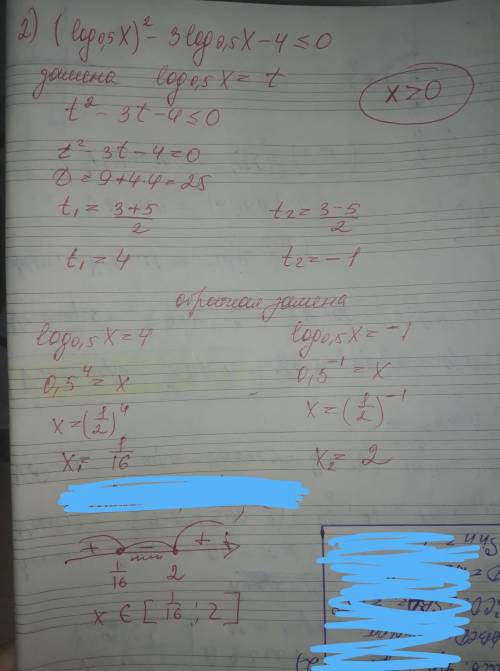 2) (log₀,₅x)² - 3log₀,₅x - 4 ≤ 0
замена log₀,₅x = t
x > 0
t² - 3t - 4 ≤ 0
t² - 3t - 4 = 0
D = 9 + 4·4 = 25
t₁ = (3+5)/2 t₂ = (3-5)/2
t₁ = 4 t₂ = -1
обратная замена
log₀,₅x = 4 log₀,₅x = -1
0,5⁴ = x 0,5⁻¹ = x
x = (1/2)⁴ x = (1/2)⁻¹
x₁ = 1/16 x₂ = 2
+ - +
1/16 2
x ∈ [1/16 ; 2]